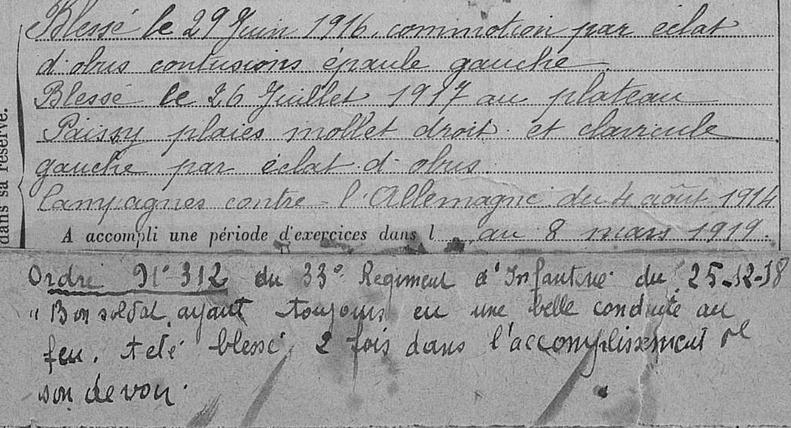 Blessé le 29 Juin 1916, commotion par éclat
d'obus contusions épaule gauche
Blessé le 26 Juillet 1917 au plateau
Paissy plaies mollet droit et clavicule
gauche par éclat d'obus
Campagnes contre l'Allemagne du 4 août 1914
A accompli une période d'exercices dans l au 8 mars 1919.
dans sa réserve.
Ordre N° 312 du 33e Regiment d'Infanterie du 25-12-18
"Bon soldat ayant toujours eu une belle conduite au
feu. A été blessé 2 fois dans l'accomplissement de
son devoir.